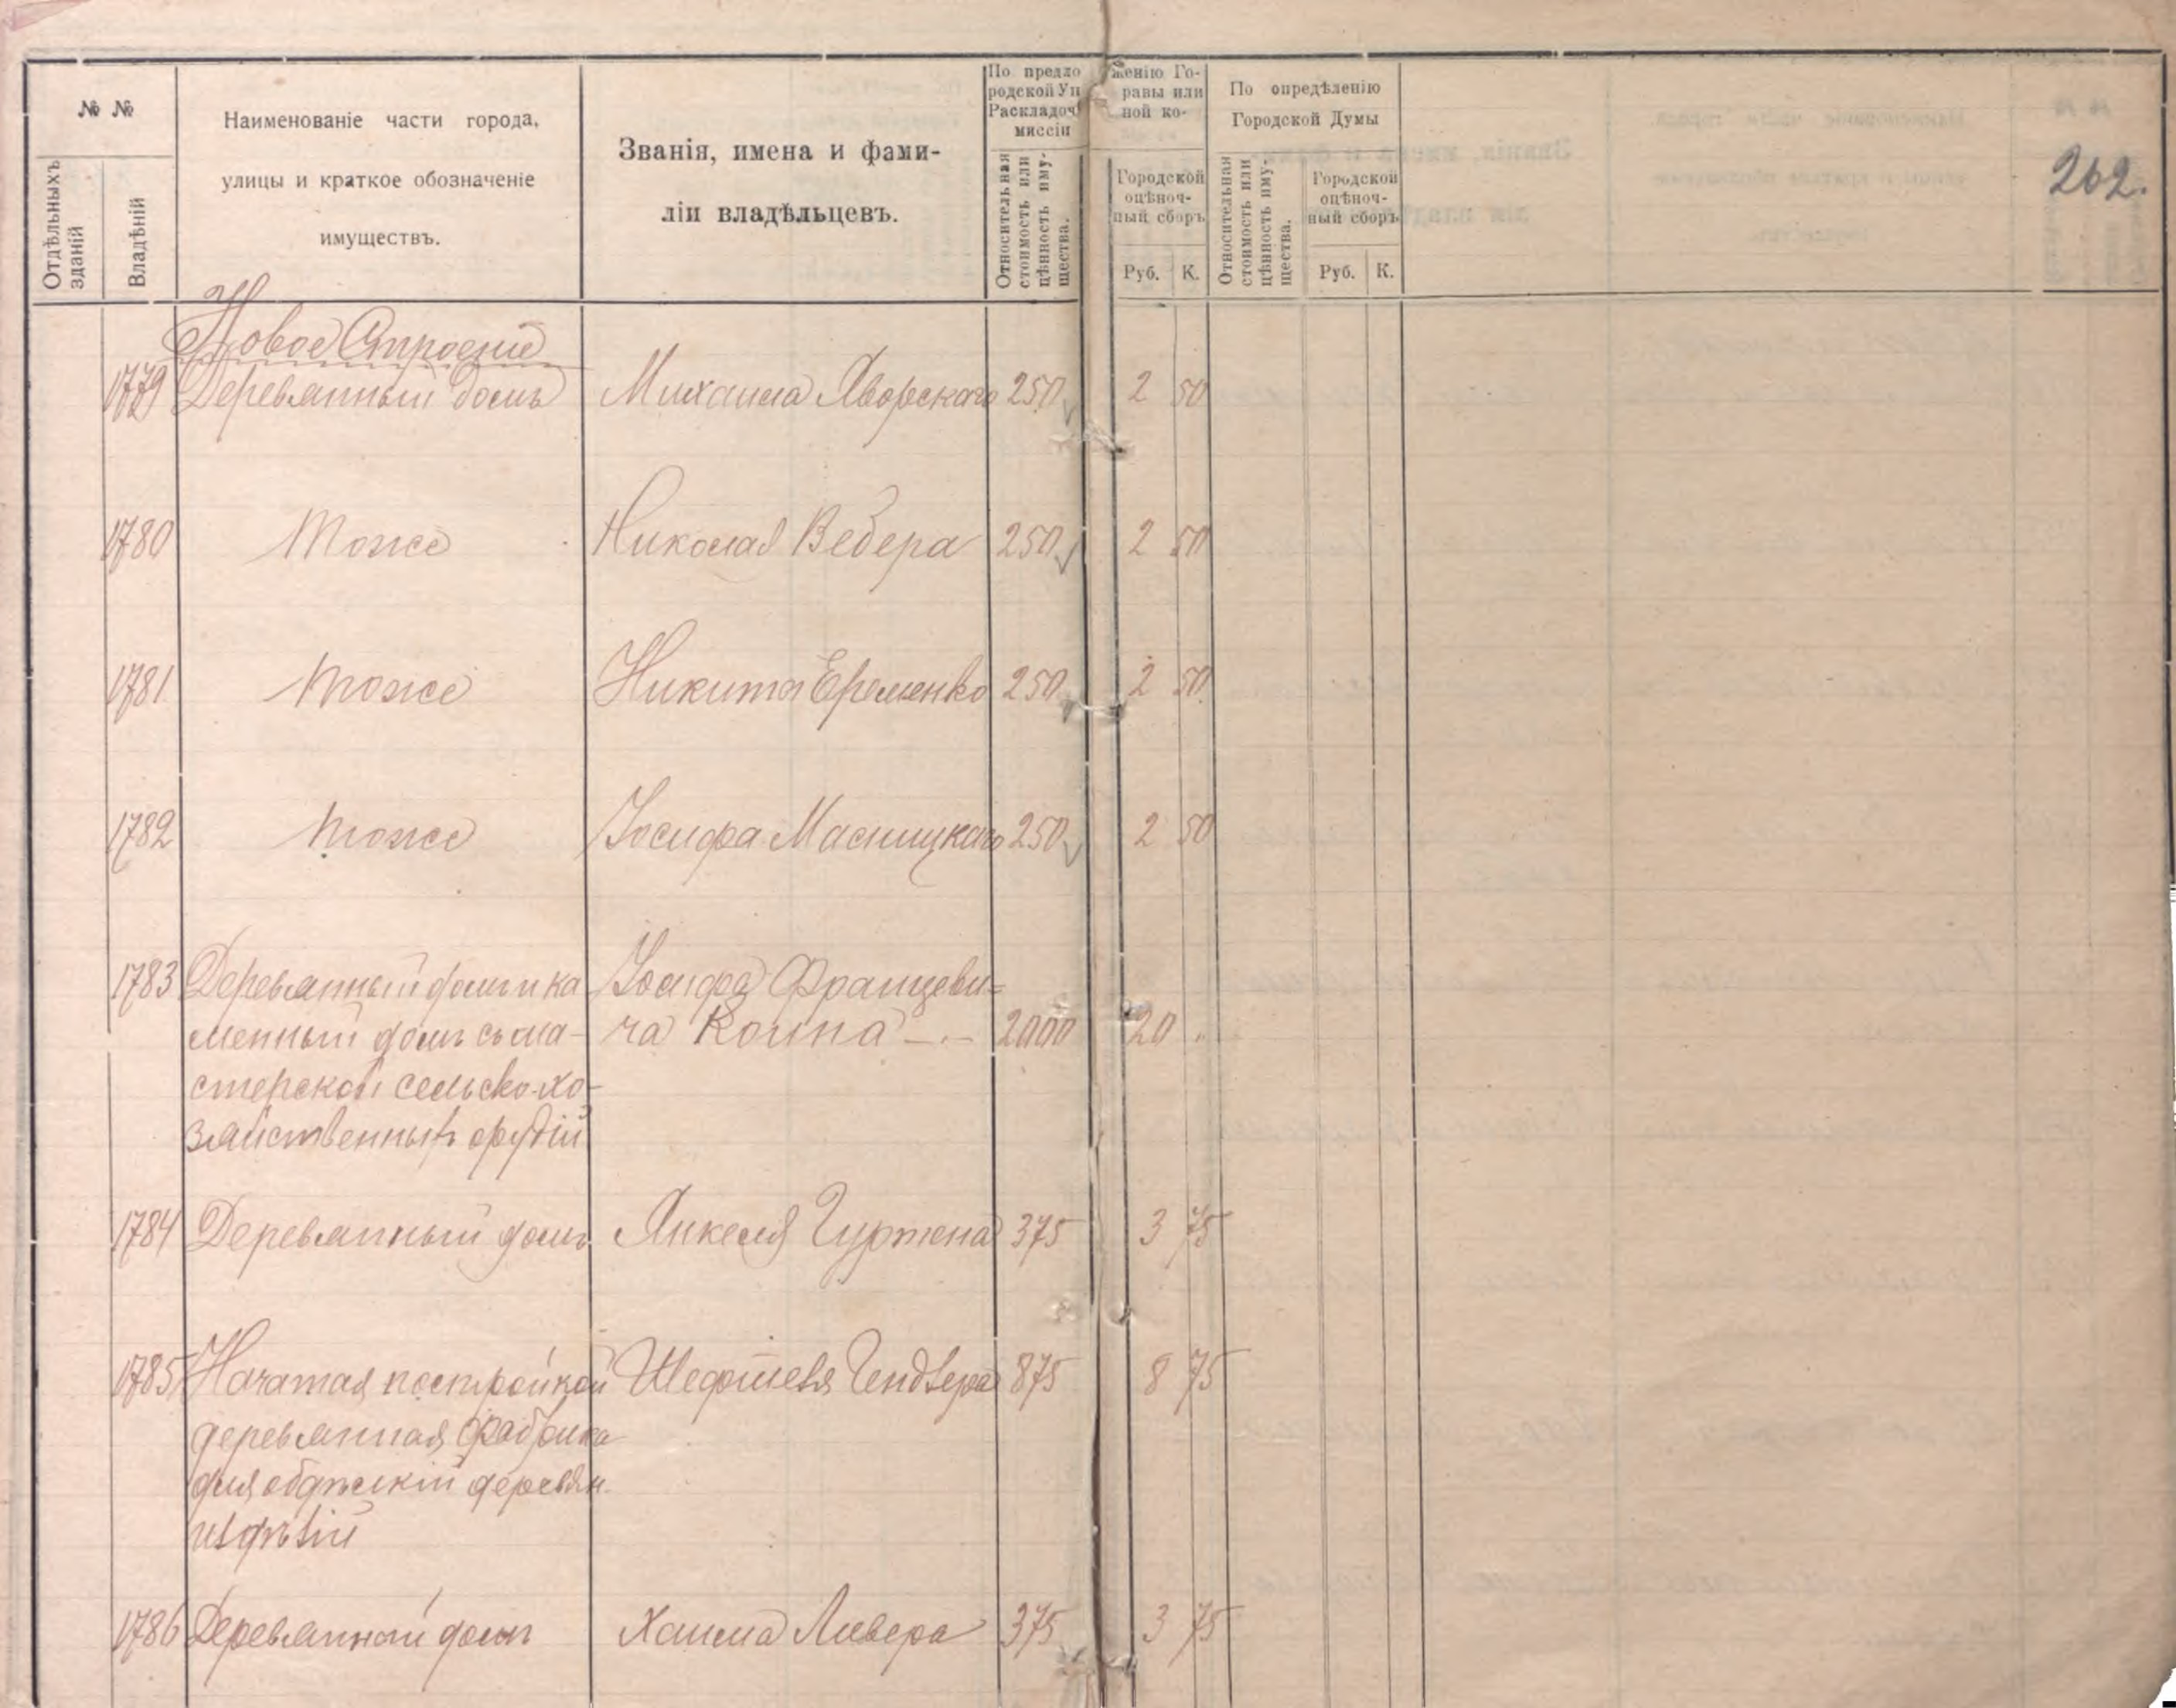 № №
Отдѣльныхъ
зданій
Владѣній
Наименованіе части города,
улицы и краткое обозначеніе
имуществъ.
Званія, имена и фами-
ліи владѣльцевъ.
По предло женію Го-
родской Уп равы или
Раскладоч ной ко-
миссіи
Относительная
стоимость или
цѣнность иму-
щества.
Городской
оцѣноч-
ный сборъ
Руб. К.
По опредѣленію
Городской Думы
Относительная
стоимость или
цѣнность иму-
щества.
Городской
оцѣноч-
ный сборъ
Руб. К.
262.
Новое Строеніе
1779 Деревянный домъ Михаила Яворскаго 250 2 50
1780 Тоже Николая Вебера 250 2 50
1781 Тоже Никиты Еременко 250 2 50
1782 Тоже Іосифа Масницкаго 250 2 50
1783 Деревянный домъ и ка Іосифа Францеви=
менный домъ съ ма- ча 2000 20 "
стерской сельско-хо-
зяйственныхъ орудій
1784 Деревянный домъ Янкеля 375 3 75
1785 Начатая постройкой 875 8 75
деревянная фабрика
для деревян.
издѣлій
1786 Деревянный домъ Хаима Ливера 375 3 75